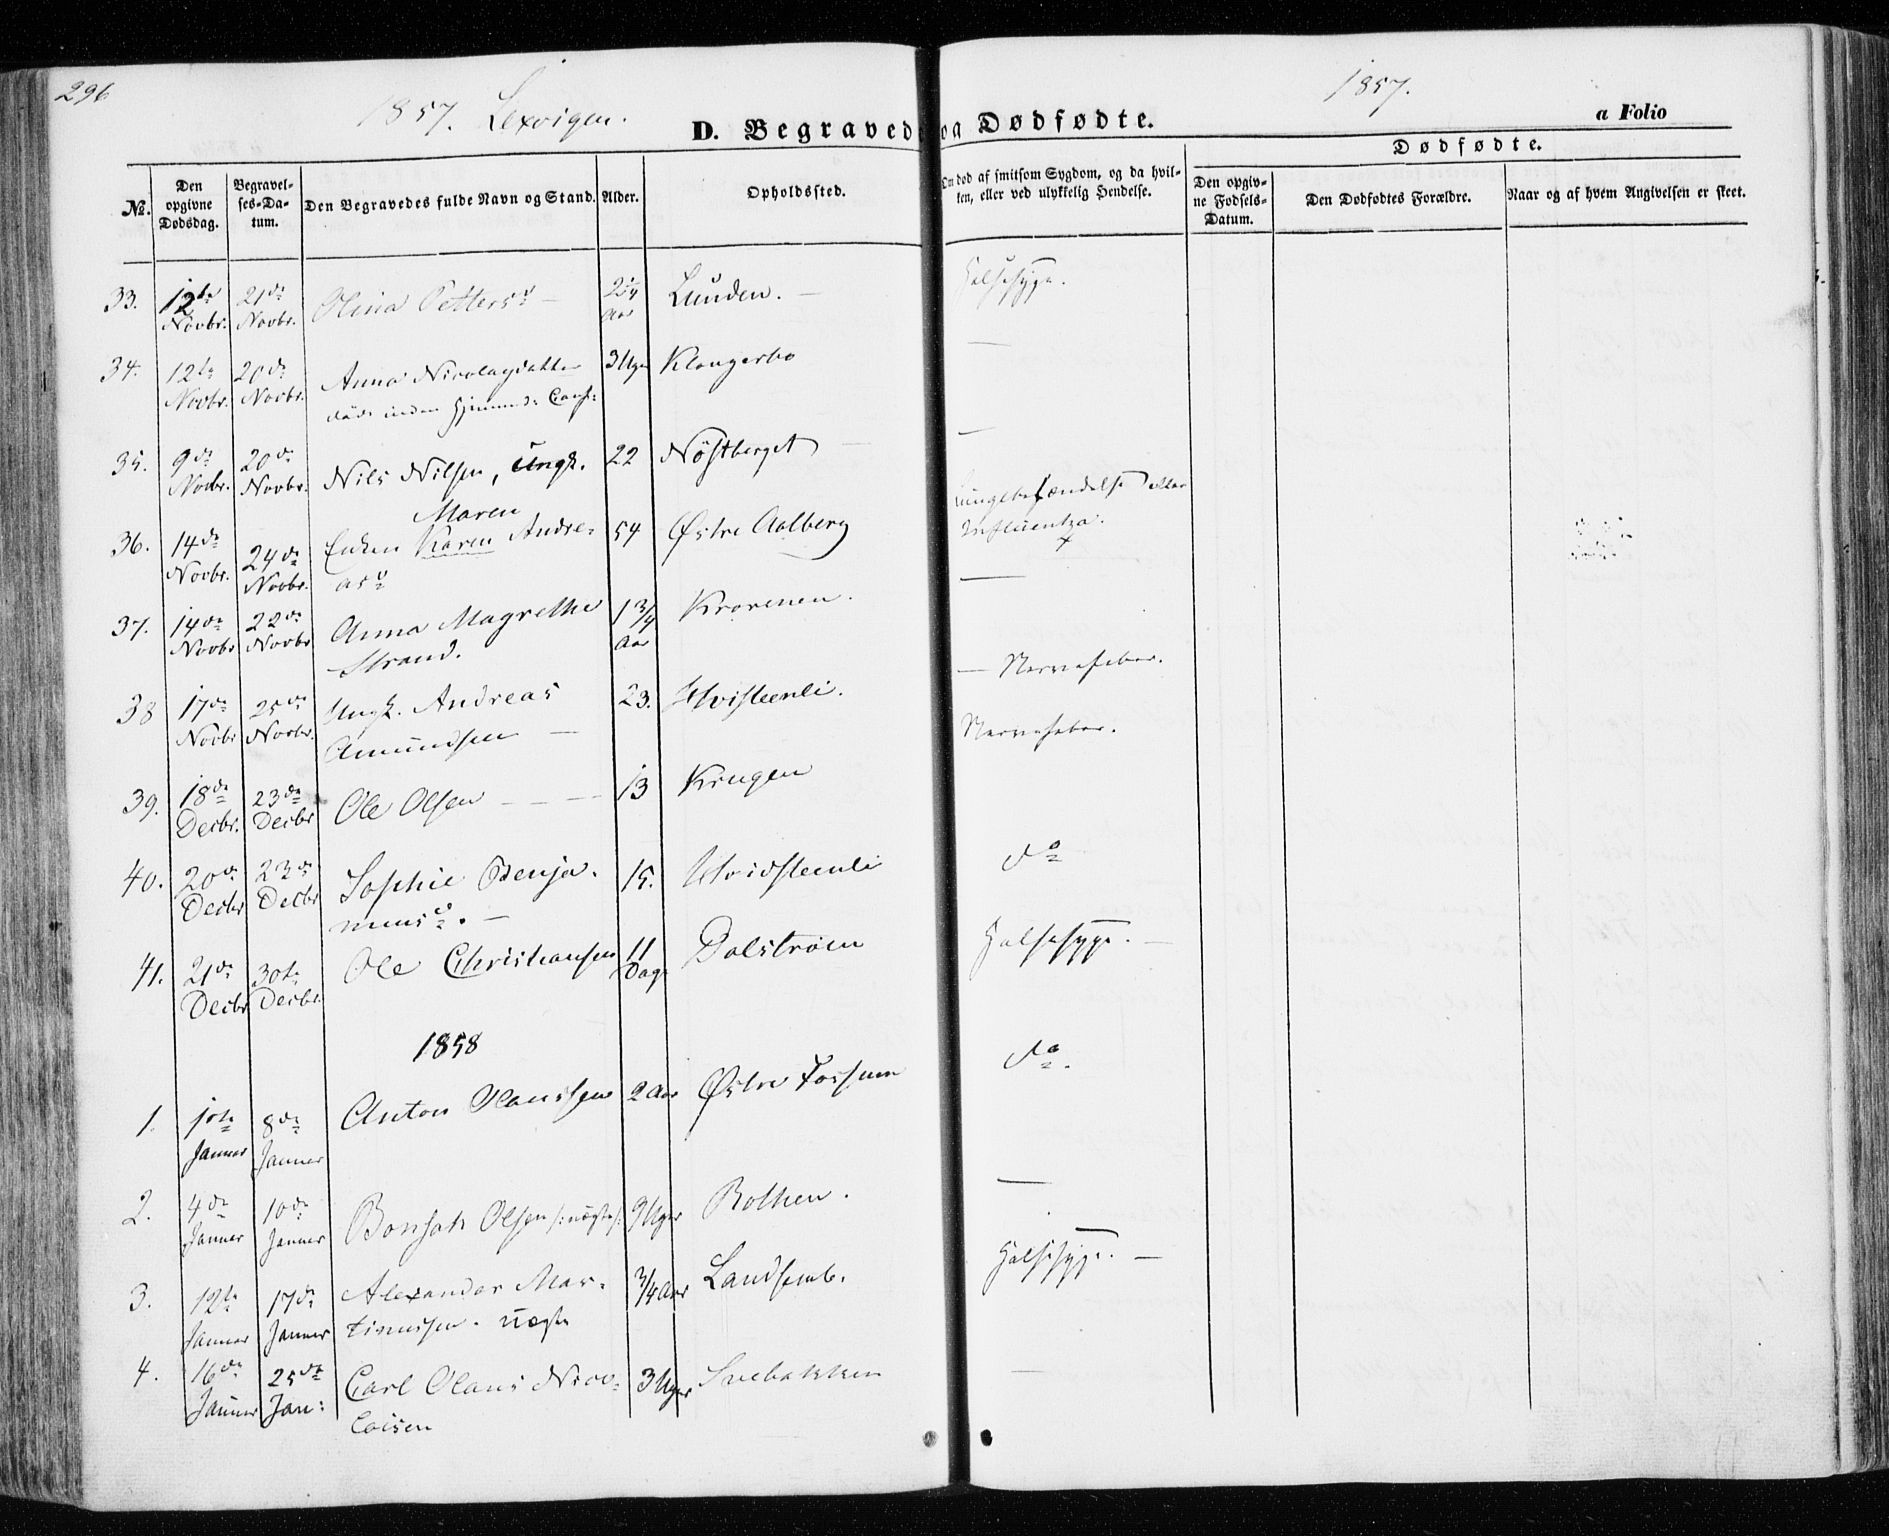 296
1857. Lexvigen.
1857.
D. Begravede og Dødfødte.
a Folio
No.
Den opgivne Dødsdag.
Begravelses-Datum.
Den Begravedes fulde Navn og Stand.
Alder.
Opholdssted.
Om død af smitsom Sygdom, og da hvilken, eller ved ulykkelig Hendelse.
Dødfødte.
Den opgivne Fødsels-Datum.
Den Dødfødtes Forældre.
Naar og af hvem Angivelsen er skeet.
33. 12te Novbr. 21de Novbr. Olina Pettersd. — 2¼ Aar Lunden. — Halssyge.
34. 12te Novbr. 20de Novbr. Anna Nicolaysdatter 3 Uger Klangerbo —
død inden Hjemmed: Conf:
35. 9de Novbr. 20de Novbr. Nils Nilsen, Ungk. 22 Nøstberget —
Maren
36. 14de Novbr. 24de Novbr. Enken Karen Andre- 54 Østre Aalberg Lungebetændelse eller
asd Influentza.
37. 14de Novbr 22de Novbr Anna Magrethe 1 3/4 Aar Krovenen. —
Strand.
38 17de Novbr 25de Novbr. Ungk. Andreas 23. Hvisteenli. — Nervefeber.
Amundsen —
39. 18de Decbr. 23de Decbr Ole Olsen — — — 13 Krugen Nervefeber.
40. 20de Decbr 23de Decbr Sophie Benja- 15. Hvidsteenli do
minsd. —
41. 21de Decbr 30te Decbr. Ole Christiansen 11 Dage Dalstrøm Halssyge. —
1858
1. 1ste Januar 8de Januar Anton Hanssen 2 Aar Østre Fossum do.
2. 4de Januar 10de Januar Bonsak Olsen /: uægte :/ 9 Uger Rotken. —
3. 12te Januar 17de Januar Alexander Mar- 3/4 Aar Landsemb. Halssyge. —
tinussen. uægte
4. 16de Januar 25de Jan: Carl Olaus Nico- 3 Uger Svebakken —
laisen